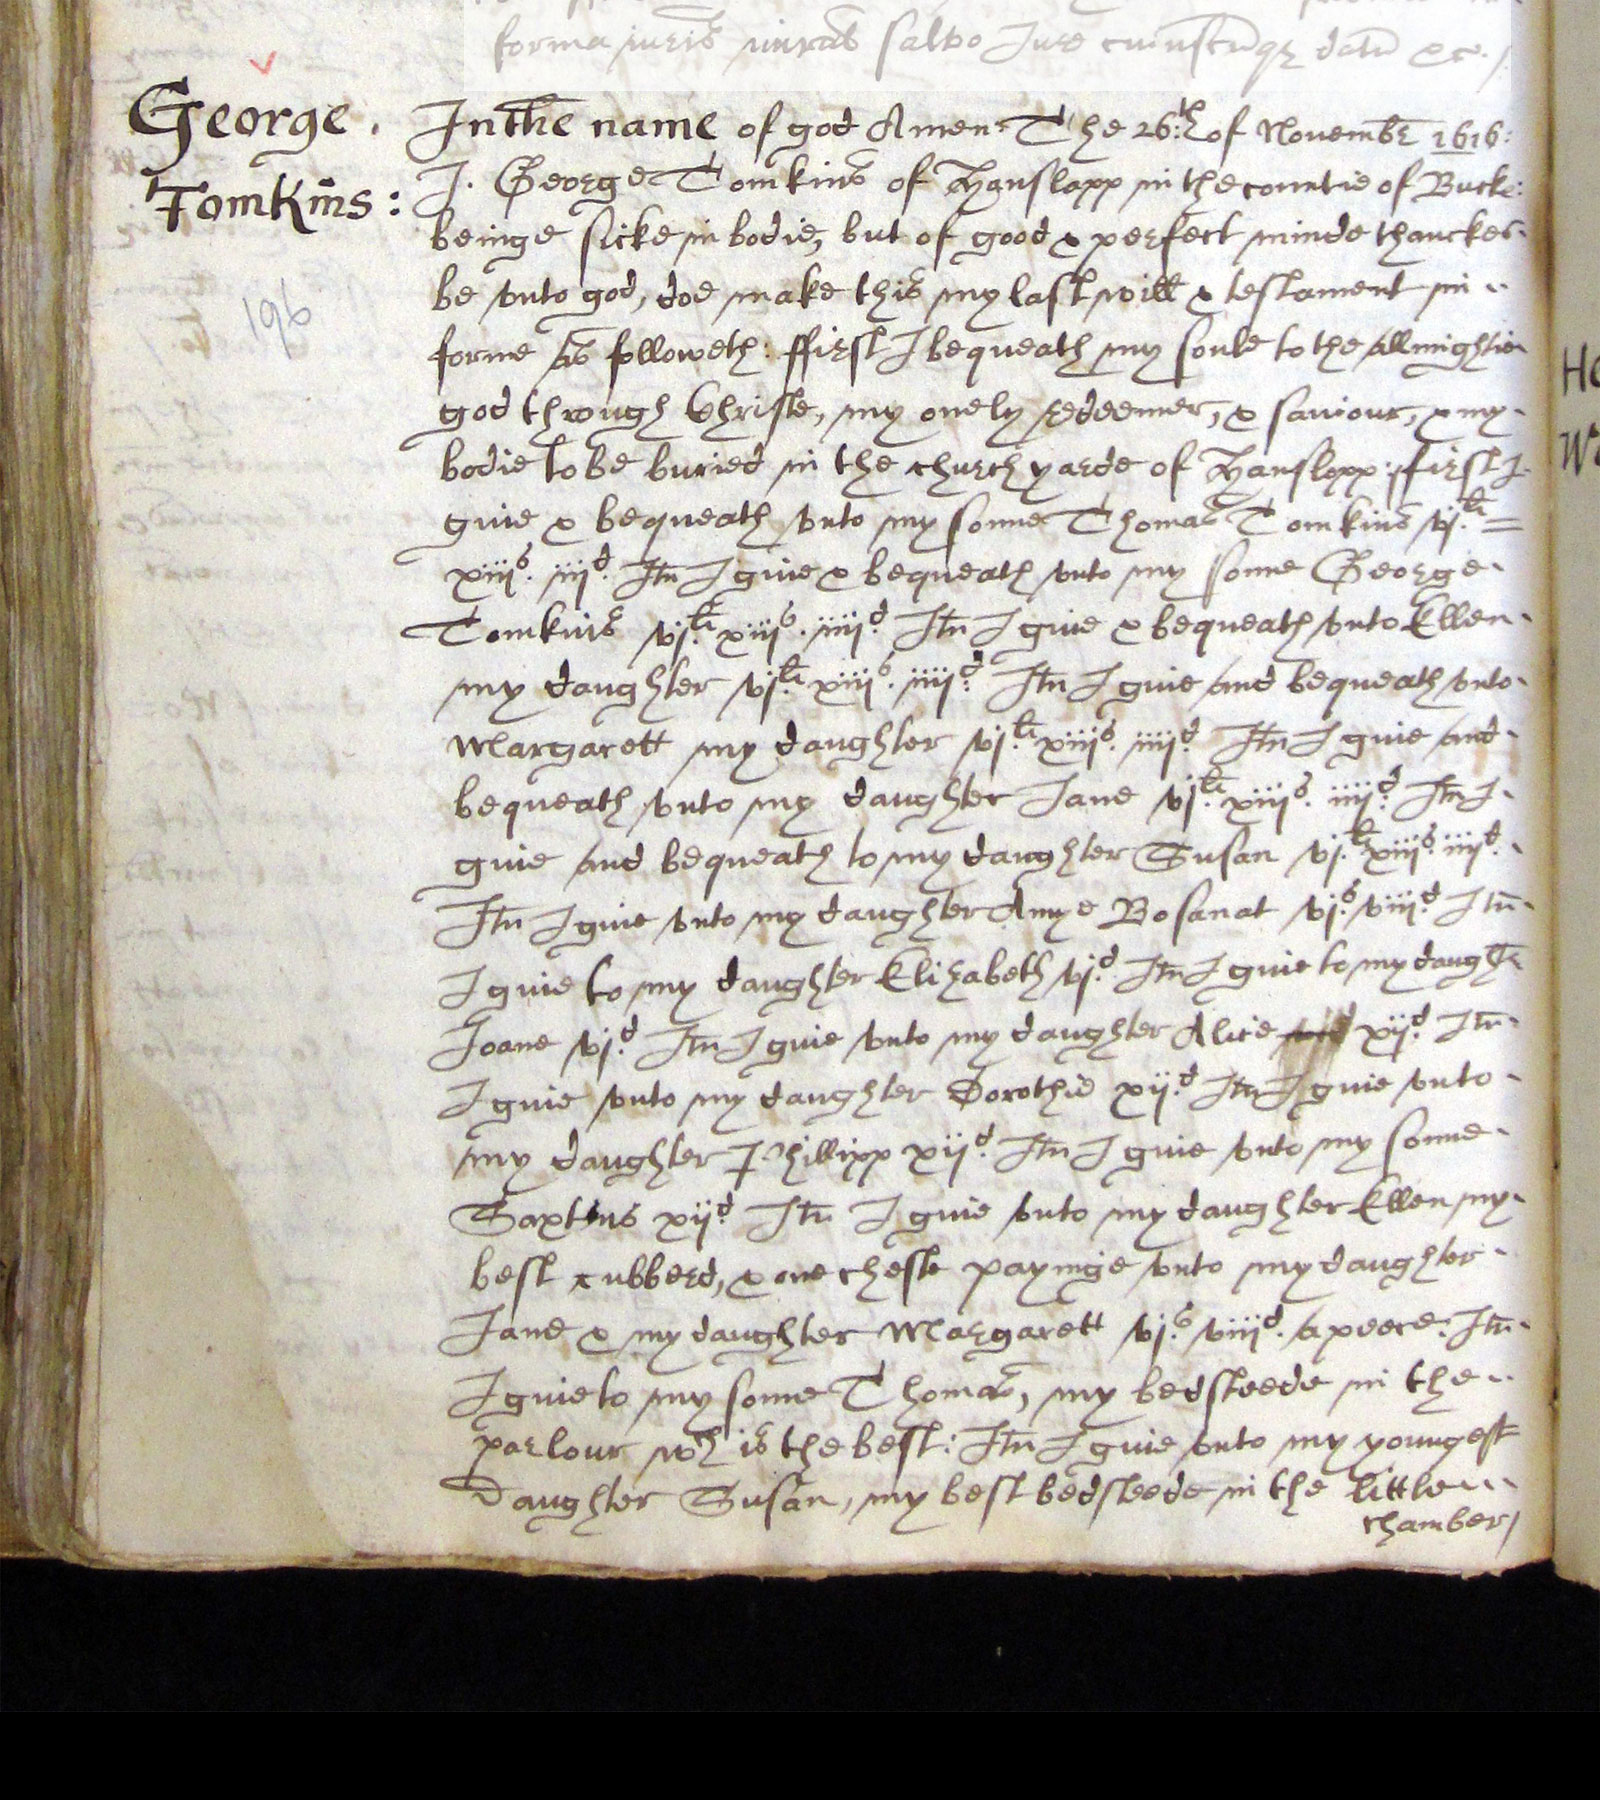 forma iuris iurat salvo Iure cuiuscūqz datū &c. /
George .
Tomkins :
196
In the name of god Amen The 26:th of Novembr 1616:
I. George Tomkins of Hanslapp in the countie of Buck:
beinge sicke in bodie, but of good & perfect minde thanckes
be vnto god, doe make this my last will & testament in
forme as followeth: ffirst I bequeath my soule to the allmightie
god through Christe, my onely redeemer, & saviour, & my
bodie to be buried in the church yarde of Hanslopp: ffirst I
giue & bequeath vnto my sonne Thomas Tomkins vj.li =
xiijs. iiijd. Itm I giue & bequeath vnto my sonne George
Tomkins vj.li xiijs. iiijd. Itm I giue & bequeath vnto Ellen
my daughter vj.li xiijs. iiijd. Itm I giue and bequeath vnto
Margarett my daughter vj.li xiijs. iiijd. Itm I giue and
bequeath vnto my daughter Jane vj.li xiijs. iiijd. Itm I
giue and bequeath to my daughter Susan vj.li xiijs. iiijd.
Itm I giue vnto my daughter Amye Bosanat vj.s viijd. Itm
I giue to my daughter Elizabeth vj.d Itm I giue to my daughtr
Joane vj.d Itm I giue vnto my daughter Alice xij.d Itm
I giue vnto my daughter Dorothie xij.d Itm I giue vnto
my daughter Phillipp xij.d Itm I giue vnto my sonne
Saxtens xij.d Itm I giue vnto my daughter Ellen my
best cubberd, & one cheste payinge vnto my daughter
Jane & my daughter Margarett vj.s viijd. a peece. Itm
I giue to my sonne Thomas, my bedsteede in the
parlour wch is the best: Itm I giue vnto my youngest
Daughter Susan, my best bedsteede in the little
chamber /